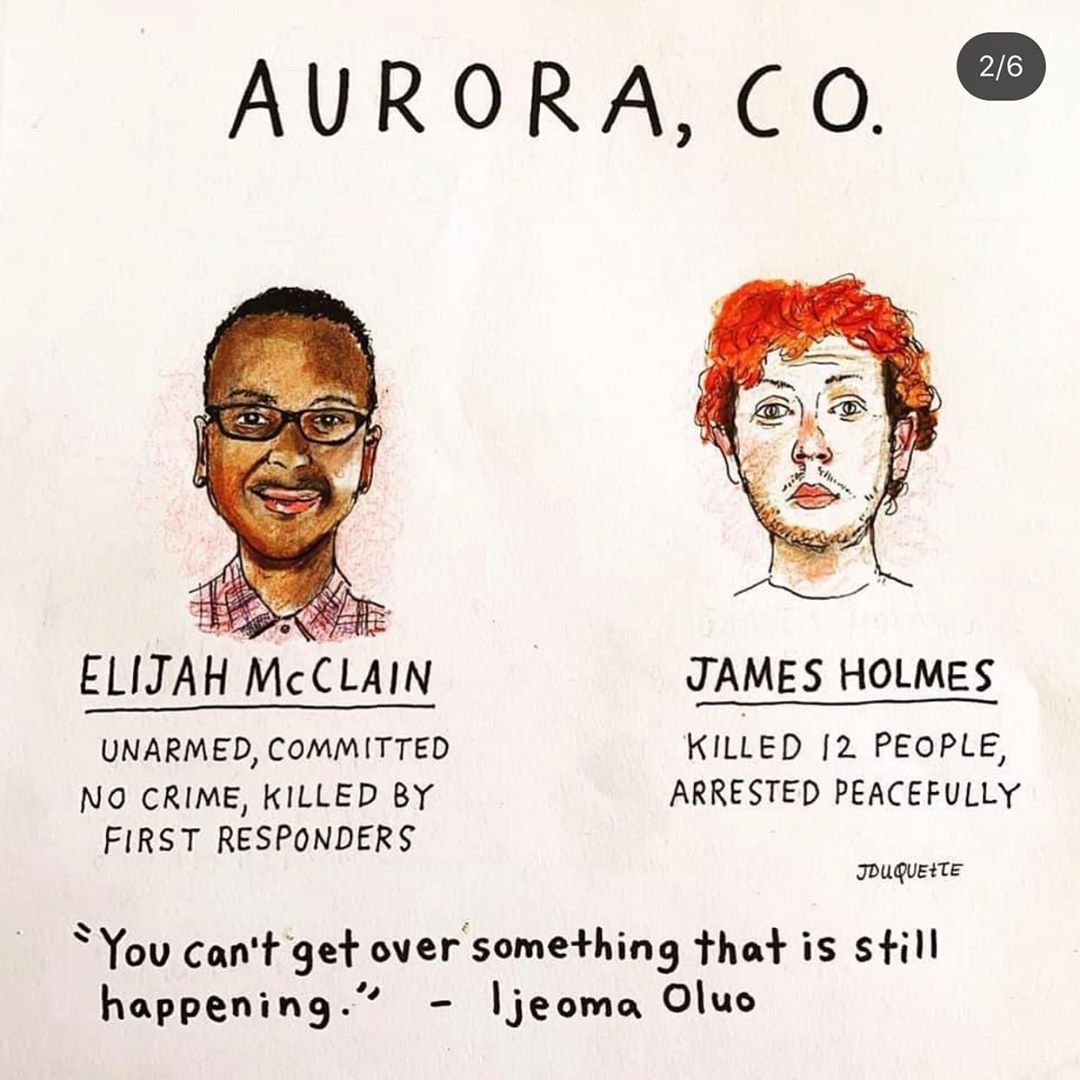 AURORA, CO.
2/6
ELIJAH McCLAIN
UNARMED, COMMITTED
NO CRIME, KILLED BY
FIRST RESPONDERS
JAMES HOLMES
KILLED 12 PEOPLE,
ARRESTED PEACEFULLY
JDUQUETTE
"You can't get over something that is still
happening." - Ijeoma Oluo